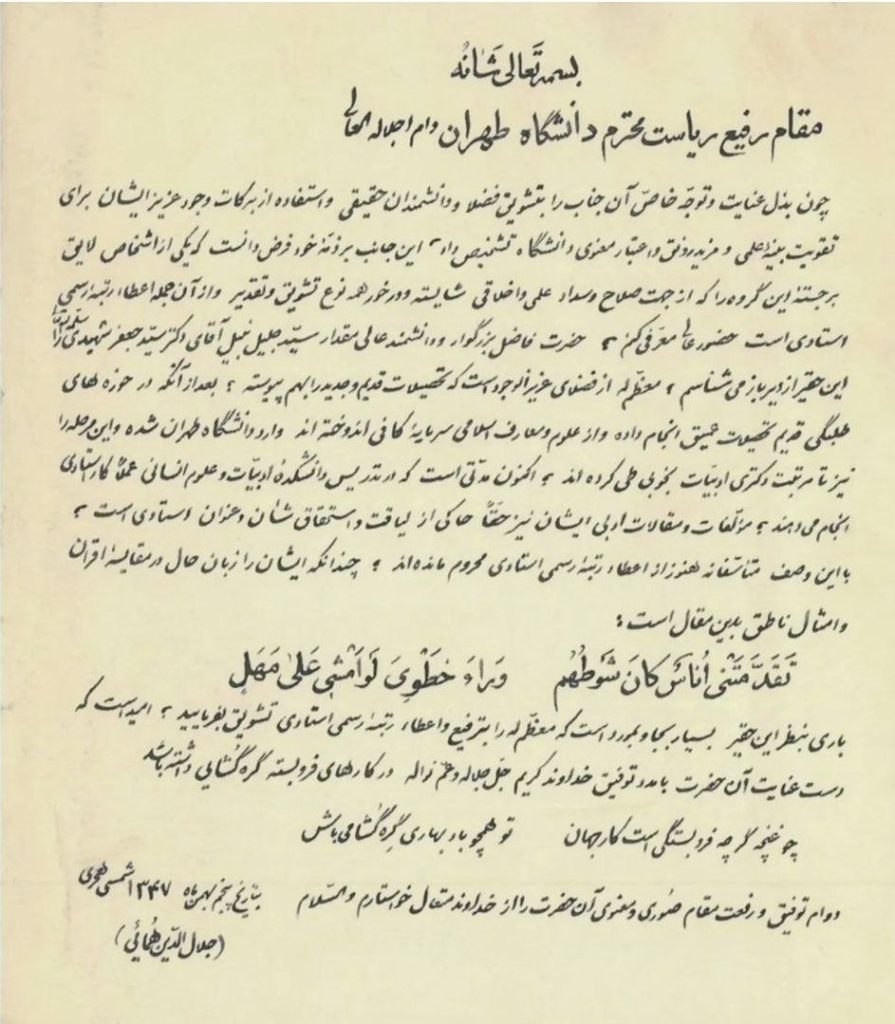 بسمه تَعالی شَانُه
مقام رفیع ریاست محترم دانشگاه طهران دام اجلاله العالی
چون بذل عنایت و توجّه خاصّ آن جناب را بتشویق فضلا و دانشمندان حقیقی و استفاده از برکات وجود عزیز ایشان برای
تقویت بنیهٔ علمی و مزید رونق و اعتبار معنوی دانشگاه تشخیص داد، این جانب بر ذمّهٔ خود فرض دانست که یکی از اشخاص لایق
برجستهٔ این گروه را که از جهت صلاح و سداد علمی و اخلاقی شایسته و در خور همه نوع تشویق و تقدیر و از آن جمله اعطاء رتبهٔ رسمی
استادی است حضور عالی معرّفی کنم؛ حضرت فاضل بزرگوار و دانشمند عالی مقدار سیّد جلیل نبیل آقای دکتر سیّد جعفر شهیدی را
این حقیر از دیر باز می شناسم؛ معظّم له از فضلای عزیزالوجود است که تحصیلات قدیم و جدید را بهم پیوسته؛ بعد از آنکه در حوزه های
طلبگی قدیم تحصیلات عمیق انجام داده و از علوم و معارف اسلامی سرمایهٔ کافی اندوخته اند وارد دانشگاه طهران شده و این مرحله را
نیز تا مرتبت دکتری ادبیّات بخوبی طی کرده اند؛ اکنون مدّتی است که در تدریس دانشکدهٔ ادبیّات و علوم انسانی عملاً کار استادی
انجام می دهند؛ مؤلّفات و مقالات ادبی ایشان نیز حقّاً حاکی از لیاقت و استحقاق شان و عنوان استادی است؛
با این وصف متاسّفانه هنوز از اعطاء رتبهٔ رسمی استادی محروم مانده اند؛ چندانکه ایشان را زبان حال در مقایسهٔ اقران
و امثال ناطق بدین مقال است:
تَقَدَّمَتْنی اُناسٌ کانَ شَوْطُهُم وَراءَ خَطْوِیَ لَو اَمْشی عَلیٰ مَهَلِ
باری بنظر این حقیر بسیار بجا و بمورد است که معظّم له را بترفیع و اعطاء رتبهٔ رسمی استادی تشویق بفرمایید؛ امید است که
دست عنایت آن حضرت بامداد توفیق خداوند کریم جلّ جلاله و عمّ نواله در کارهای فروبسته گره گشایی داشته باشد
چو غنچه گرچه فروبستگی است کار جهان تو همچو باد بهاری گره گشا می باش
دوام توفیق و رفعت مقام صُوری و معنوی آن حضرت را از خداوند متعال خواستارم والسّلام بتاریخ پنجم بهمن ماه ۱۳۴۷ شمسی هجری
(جلال الدّین همائی)